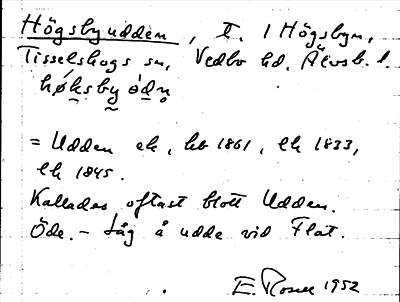 Högsbyudden, t. 1 Högsbyn,
Tisselskogs sn, Vedbo hd. Älvsb. l.
høksby òdn̥
= Udden ek, hb 1861, lk 1833,
lk 1845.
Kallades oftast blott Udden.
Öde. – Låg å udde vid Flat.
E. Rosell 1952